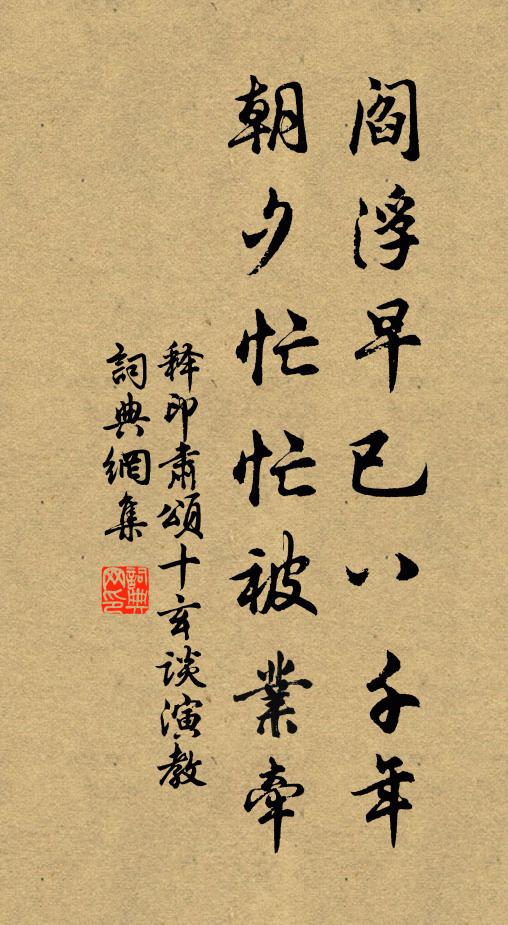 閻浮早已八千年
朝夕忙忙被業牽
释印肅頌十玄談演教
詞典網集
詞典
网印